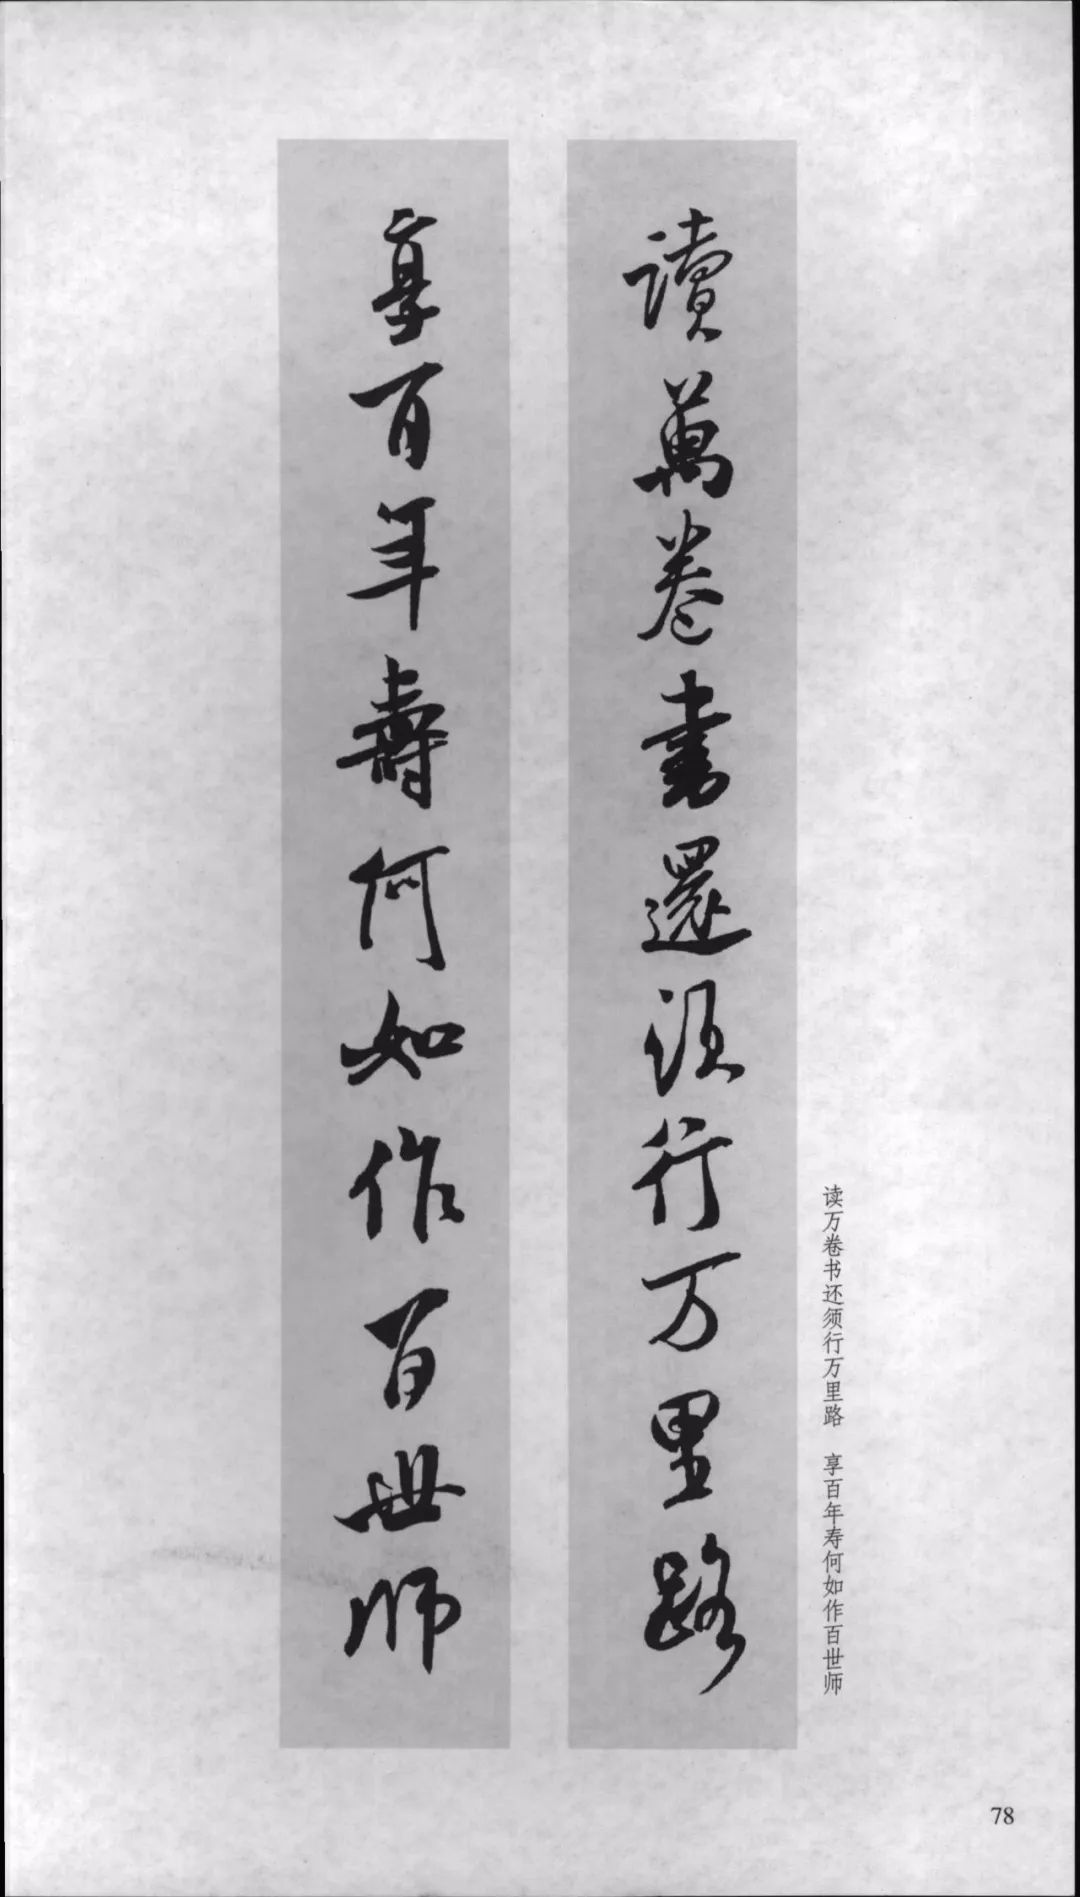 讀萬卷書還須行万里路
享百年壽何如作百世师
读万卷书还须行万里路 享百年寿何如作百世师
78